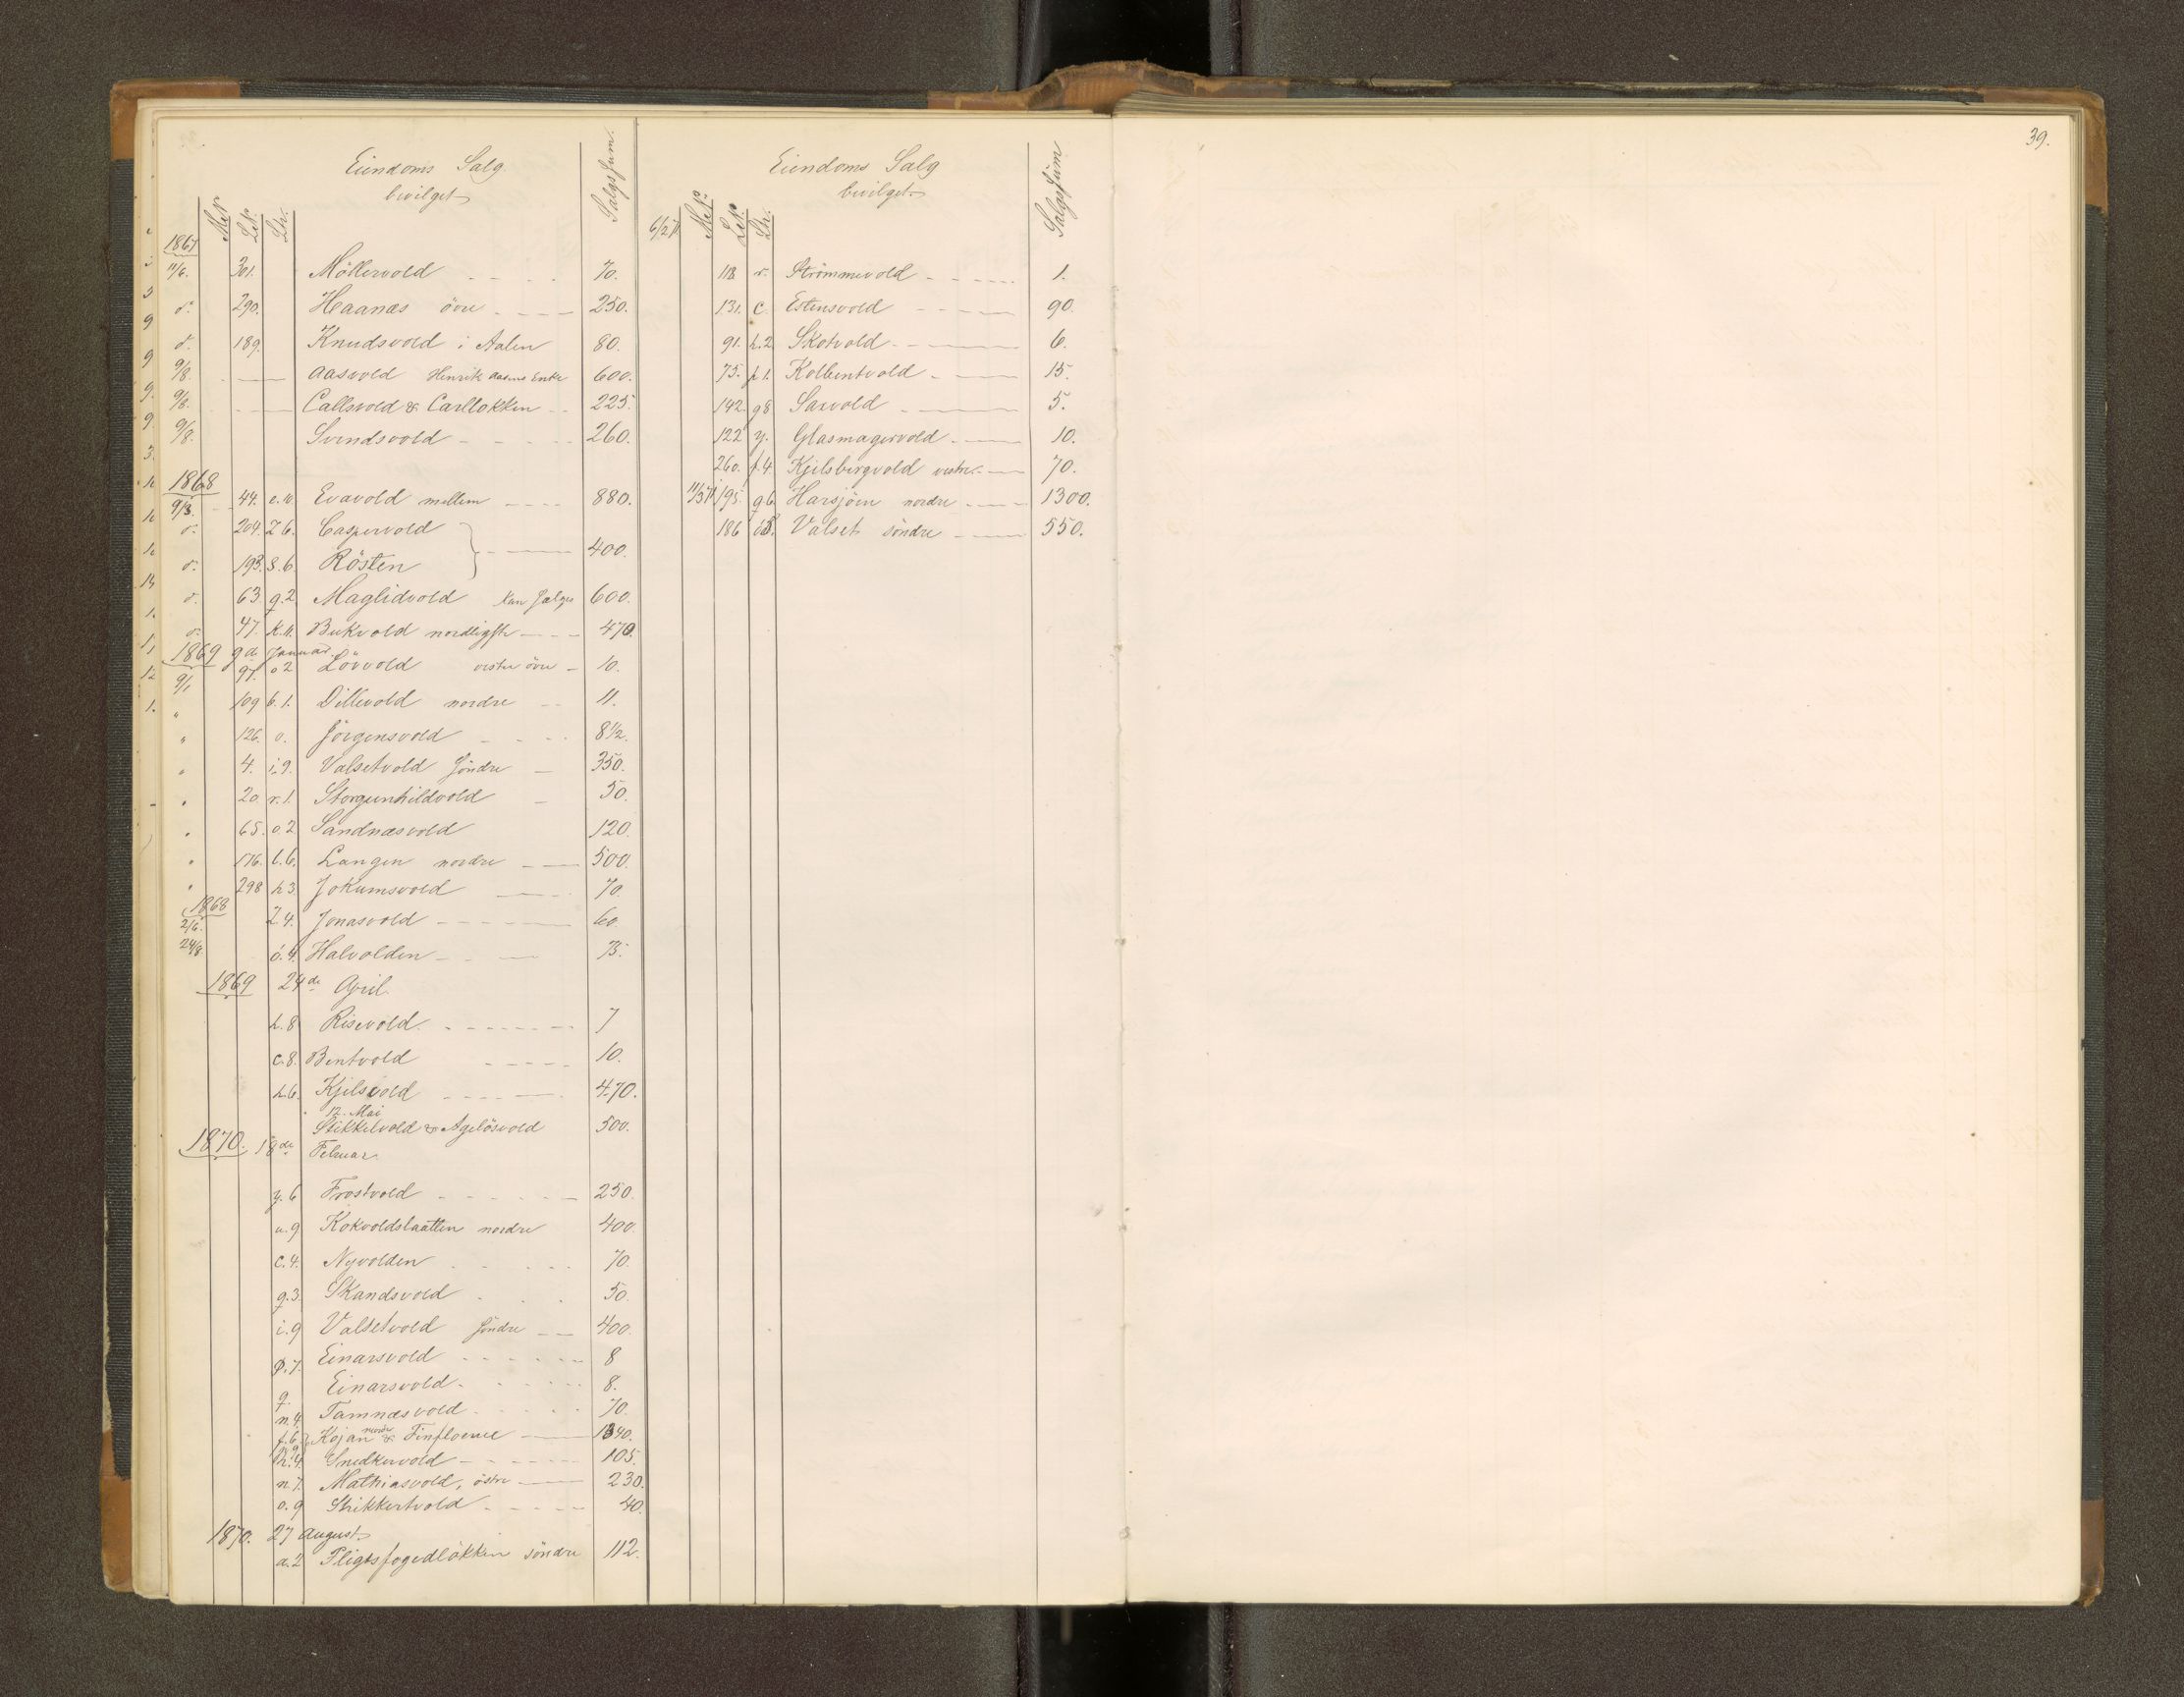 Eiendoms Salg.
bevilget
M.N. L.N. Ltr. Salgs Sum.
1867
11/6. 301. Möllervold 70.
d. 290. Haanæs övre 250.
d. 189. Knudsvold i Aalen 80.
9/8. Aasvold Henrik Aasens Enke 600.
9/8. Callsvold & Carlløkken 225.
9/8. Svendsvold 260.
1868
9/3. 44. e.10 Evavold mellem 880.
d. 204. Z 6. Caspervold
400.
d. 193. s.6. Rösten
d. 63. q.2. Maglidvold kan sælges 600.
d. 47. k.11. Bukvold nordligste 470.
1869 9de Januar.
9/1 97. o 2 Lövvold vestre övre 10.
" 109 b.1. Dillevold nordre 11.
" 126. v. Jörgensvold 8 1/2.
" 4. i.9. Valsetvold Söndre 350.
" 20. r.1. Storgunhildvold 50.
" 65. o.2 Sandnæsvold 120.
" 176. l.6. Langen nordre 500.
" 298 h 3. Jokumsvold 70.
1868
2/6. 2.4. Jonasvold 60.
24/8. ö.4. Halvolden 75.
1869 24de April.
h.8 Risevold 7
c.8. Bentvold 10.
h.6. Kjelsvold 470.
12. Mai
Stikkelvold & Agelösvold 500.
1870. 18de Februar.
y.6 Frostvold 250.
u.9 Kokvoldslaatten nordre 400.
c.4. Nyvolden 70.
q.3. Skandsvold 50.
i.9 Valsetvold Söndre 400.
p.7. Einarsvold 8
q. Einarsvold 8.
n.4. Tamnæsvold 70.
f.6. Kojan nordre & Finfloene 1340.
h.4. Snedkervold 105.
n.7. Mathiasvold, östre 230.
o.9 Strikkertvold 40.
1870. 27 August
a.2 Pligtsfogedlökken söndre 112.
Eiendoms Salg
bevilget
6/2 71 M.N. L.N. Ltr. Salgs Sum
118 r. Strömmevold 1.
131. c. Estensvold 90.
91. h.2 Skotvold 6.
75. p 1. Kolbentvold 15.
142. g 8 Sarvold 5.
122 y. Glasmagervold 10.
260. f.4 Kjelsbergvold vestre 70.
11/5 71 195. g 6. Harsjöen nordre 1300.
186 Valset söndre 550.
39.